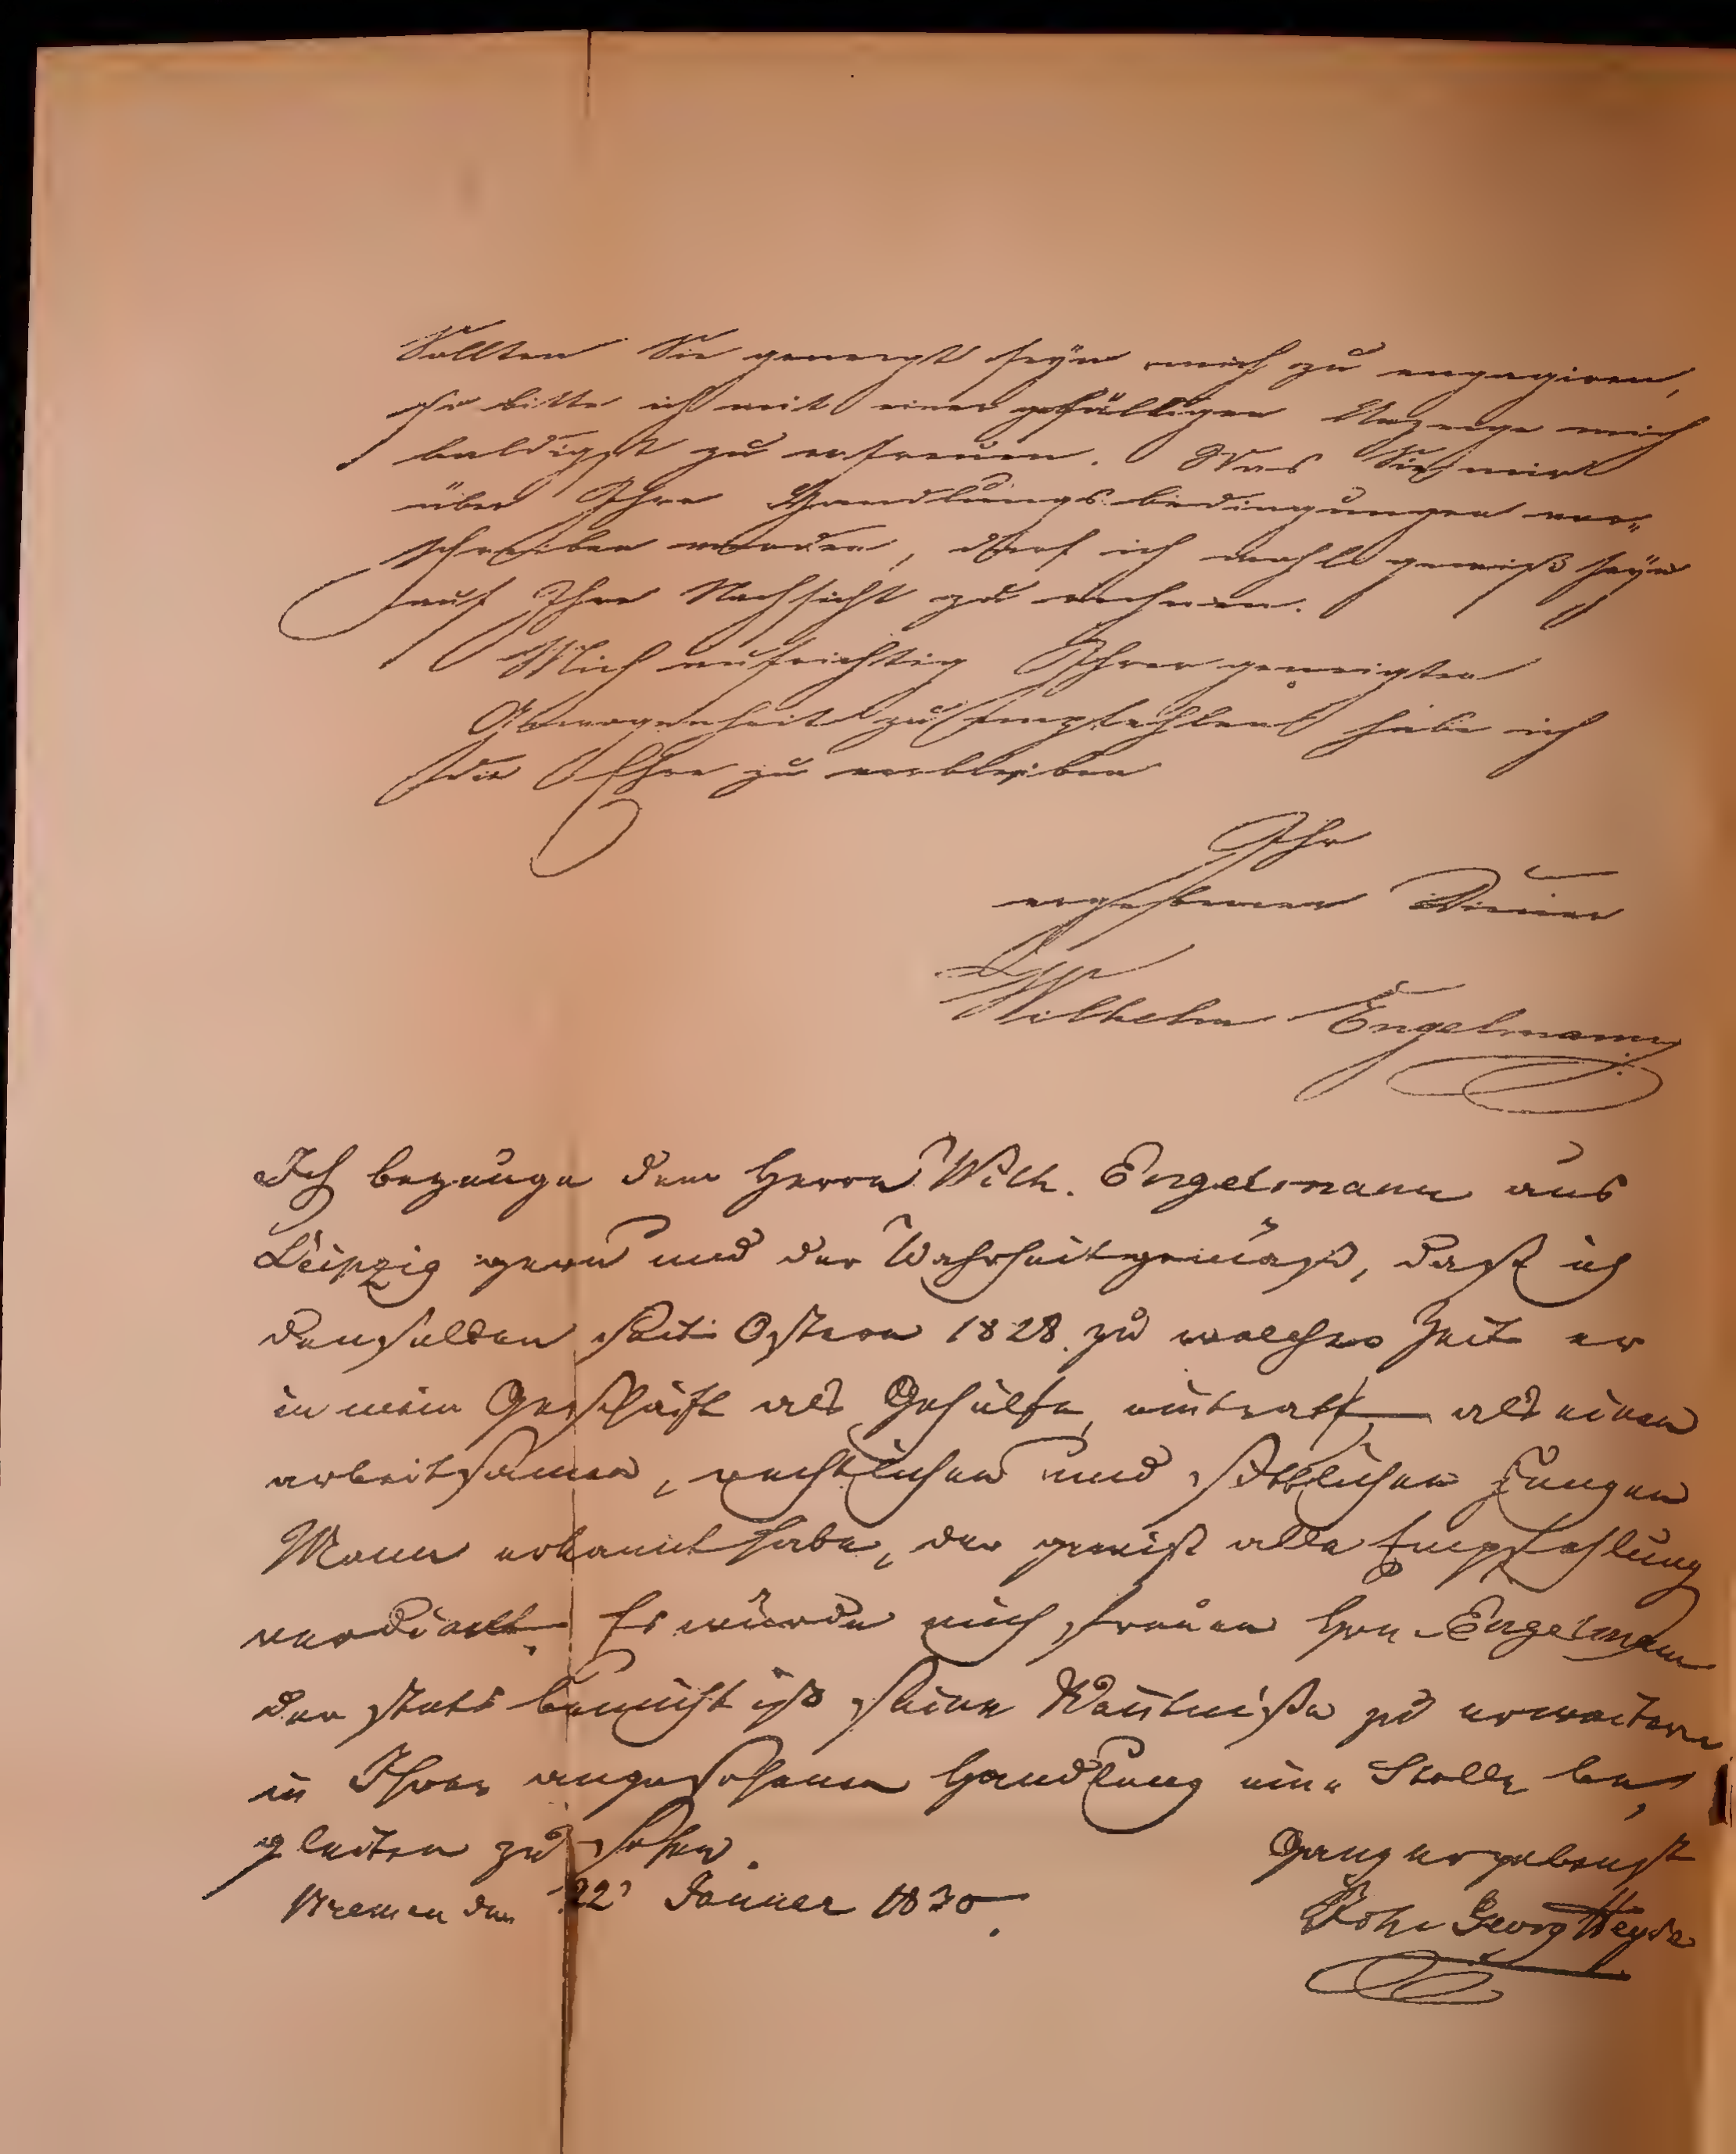 Sollten Sie geneigt seyn mich zu engagiren,
so bitte ich mit einer gefälligen Anzeige mich
baldigst zu erfreuen. Was Sie mir
über Ihre Handlungsbedingungen vor-
schreiben werden, darf ich wohl gewiß seyn
auf Ihre Nachsicht zu rechnen.
Mich aufrichtig Ihrer geneigten
Gewogenheit zu empfehlen habe ich
die Ehre zu verbleiben
Ihr
ergebener Diener
Wilhelm Engelmann
Ich bezeuge dem Herrn Wilh. Engelmann aus
Leipzig gern und der Wahrheit gemäß, daß ich
denselben seit Ostern 1828 zu welcher Zeit er
in mein Geschäft als Gehülfe eintratt als einen
arbeitsamen, rechtlichen und sittlichen jungen
Mann erkannt habe, der gewiß alle Empfehlung
verdient. Es würde mich freuen Hrn. Engelmann
der stets bemüht ist seine Kentniße zu erweitern
in Ihrer angesehenen Handlung eine Stelle be,
gleiten zu sehen.
Ganz ergebenst
Bremen den 22 Januar 1830.
Joh. Georg Heyse